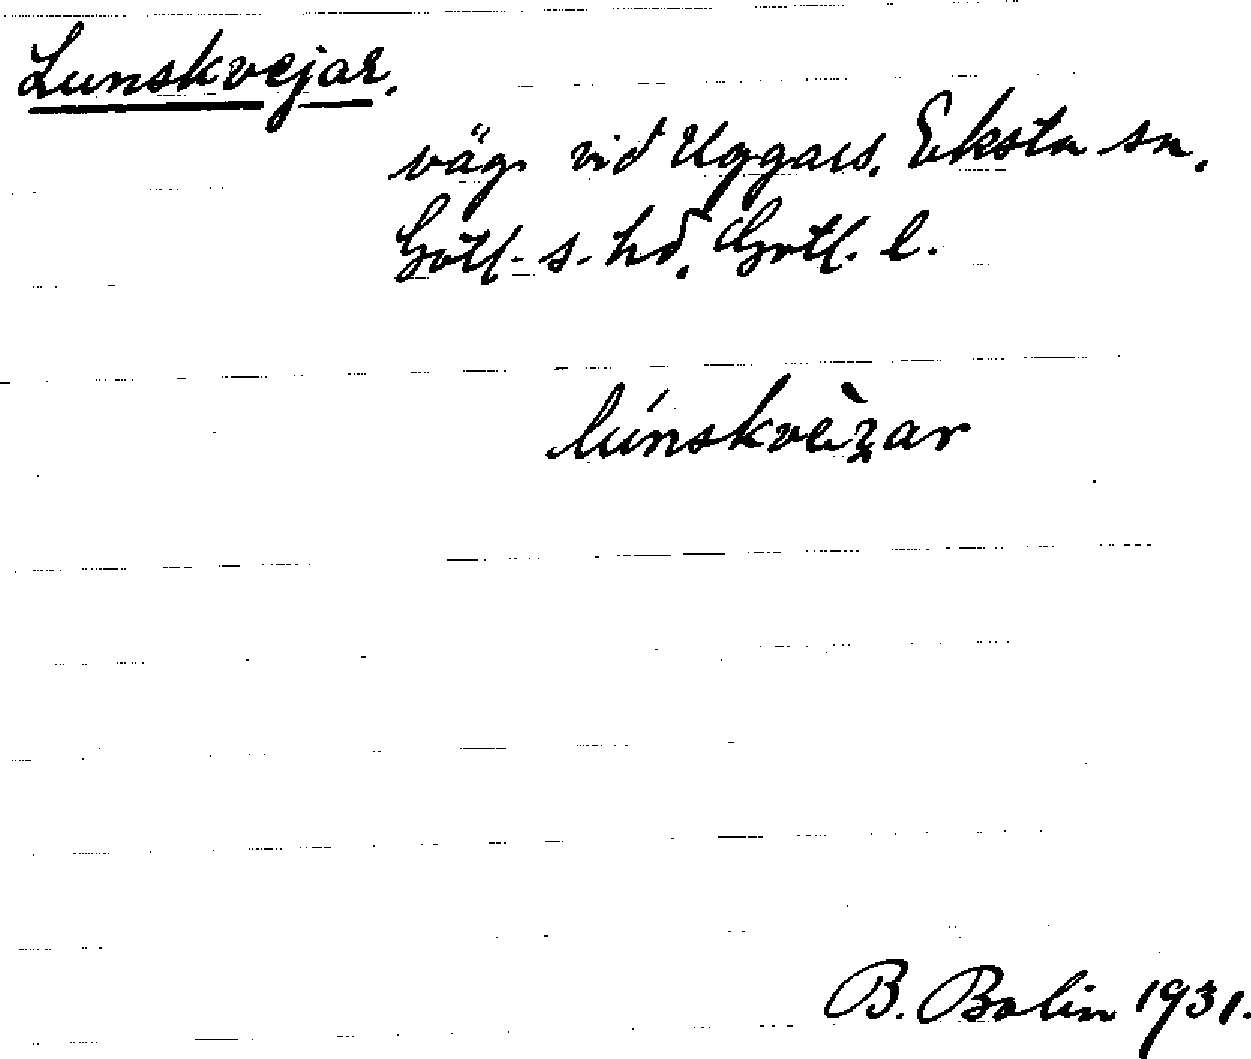 Lunskvejar.
väg vid Uggars, Eksta sn.
Gotl. s. hd, Gotl. l.
lúnskvèʒar
B. Bolin 1931.